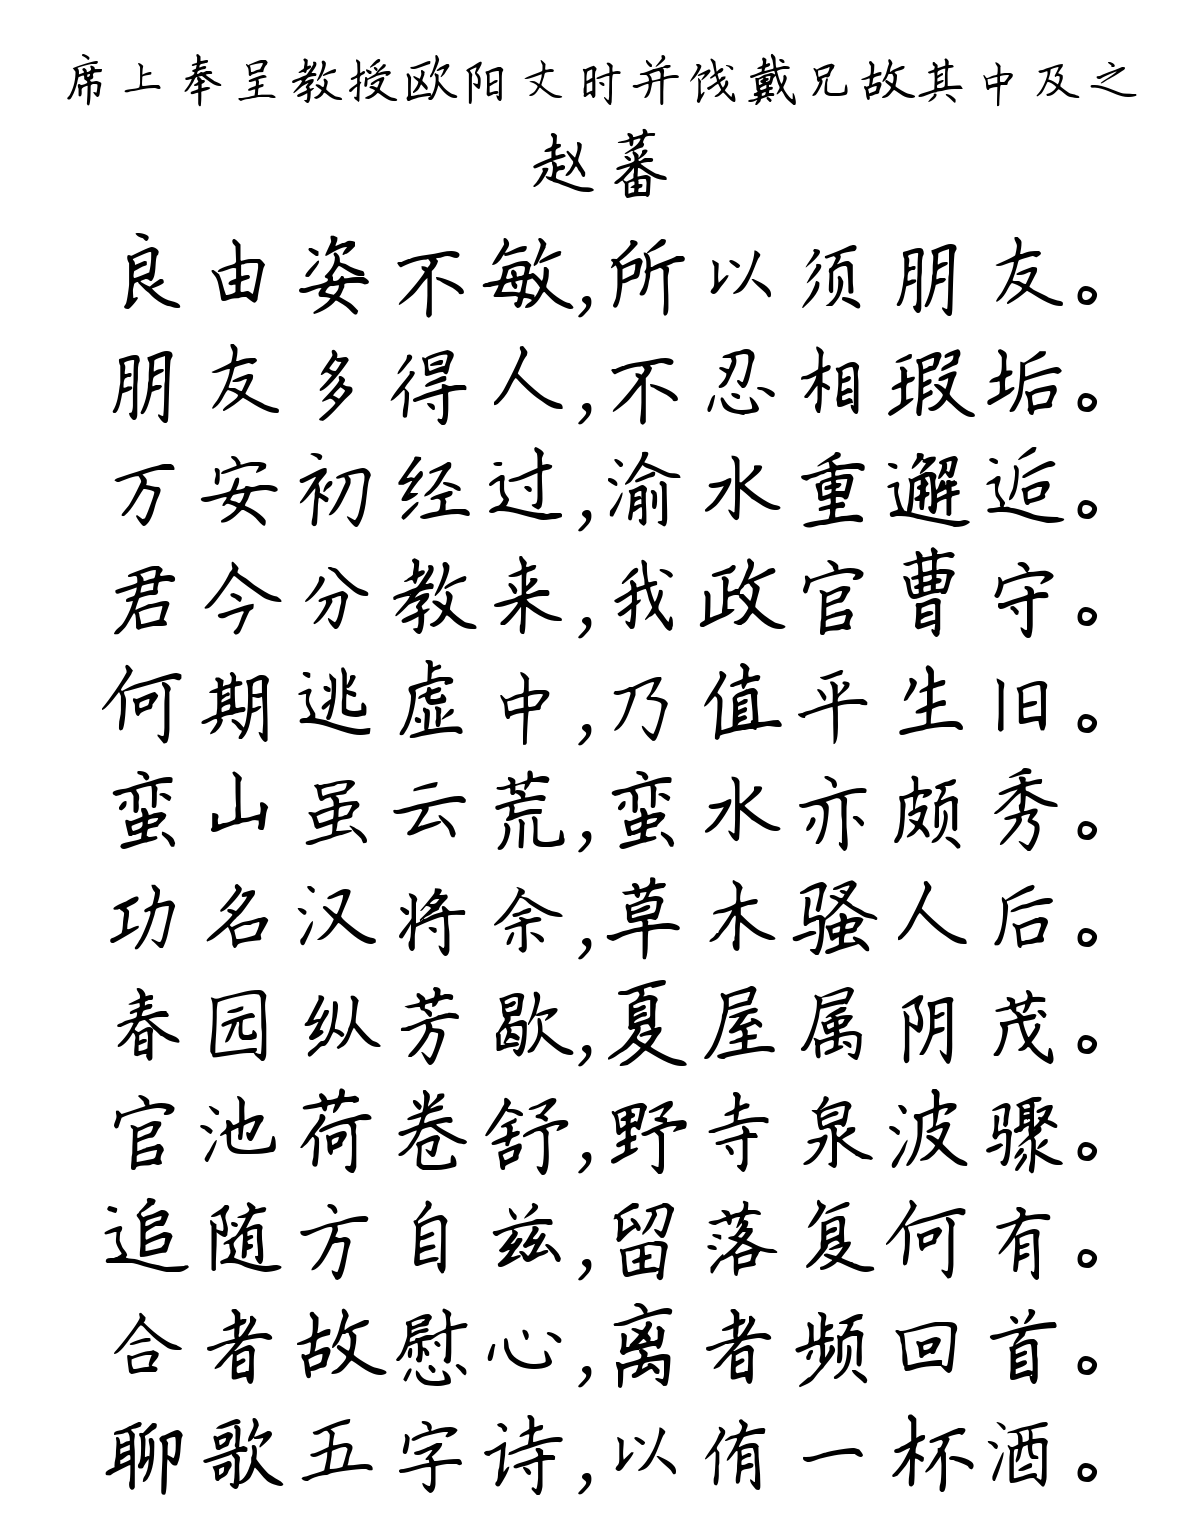 席上奉呈教授欧阳丈时并饯戴兄故其中及之
赵蕃
良由姿不敏,所以须朋友。
朋友多得人,不忍相瑕垢。
万安初经过,渝水重邂逅。
君今分教来,我政官曹守。
何期逃虚中,乃值平生旧。
蛮山虽云荒,蛮水亦颇秀。
功名汉将余,草木骚人后。
春园纵芳歇,夏屋属阴茂。
官池荷卷舒,野寺泉波骤。
追随方自兹,留落复何有。
合者故慰心,离者频回首。
聊歌五字诗,以侑一杯酒。